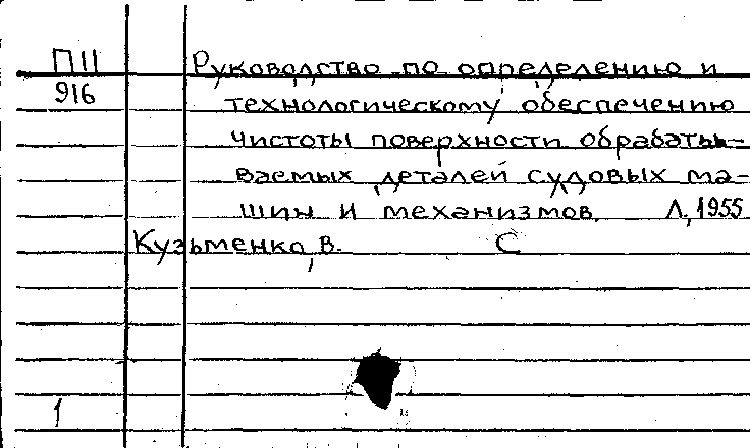 П11 Руководство по определению и
916 технологическому обеспечению
чистоты поверхности обрабаты-
ваемых деталей судовых ма-
шин и механизмов. Л, 1955
Кузьменко, В. С
1